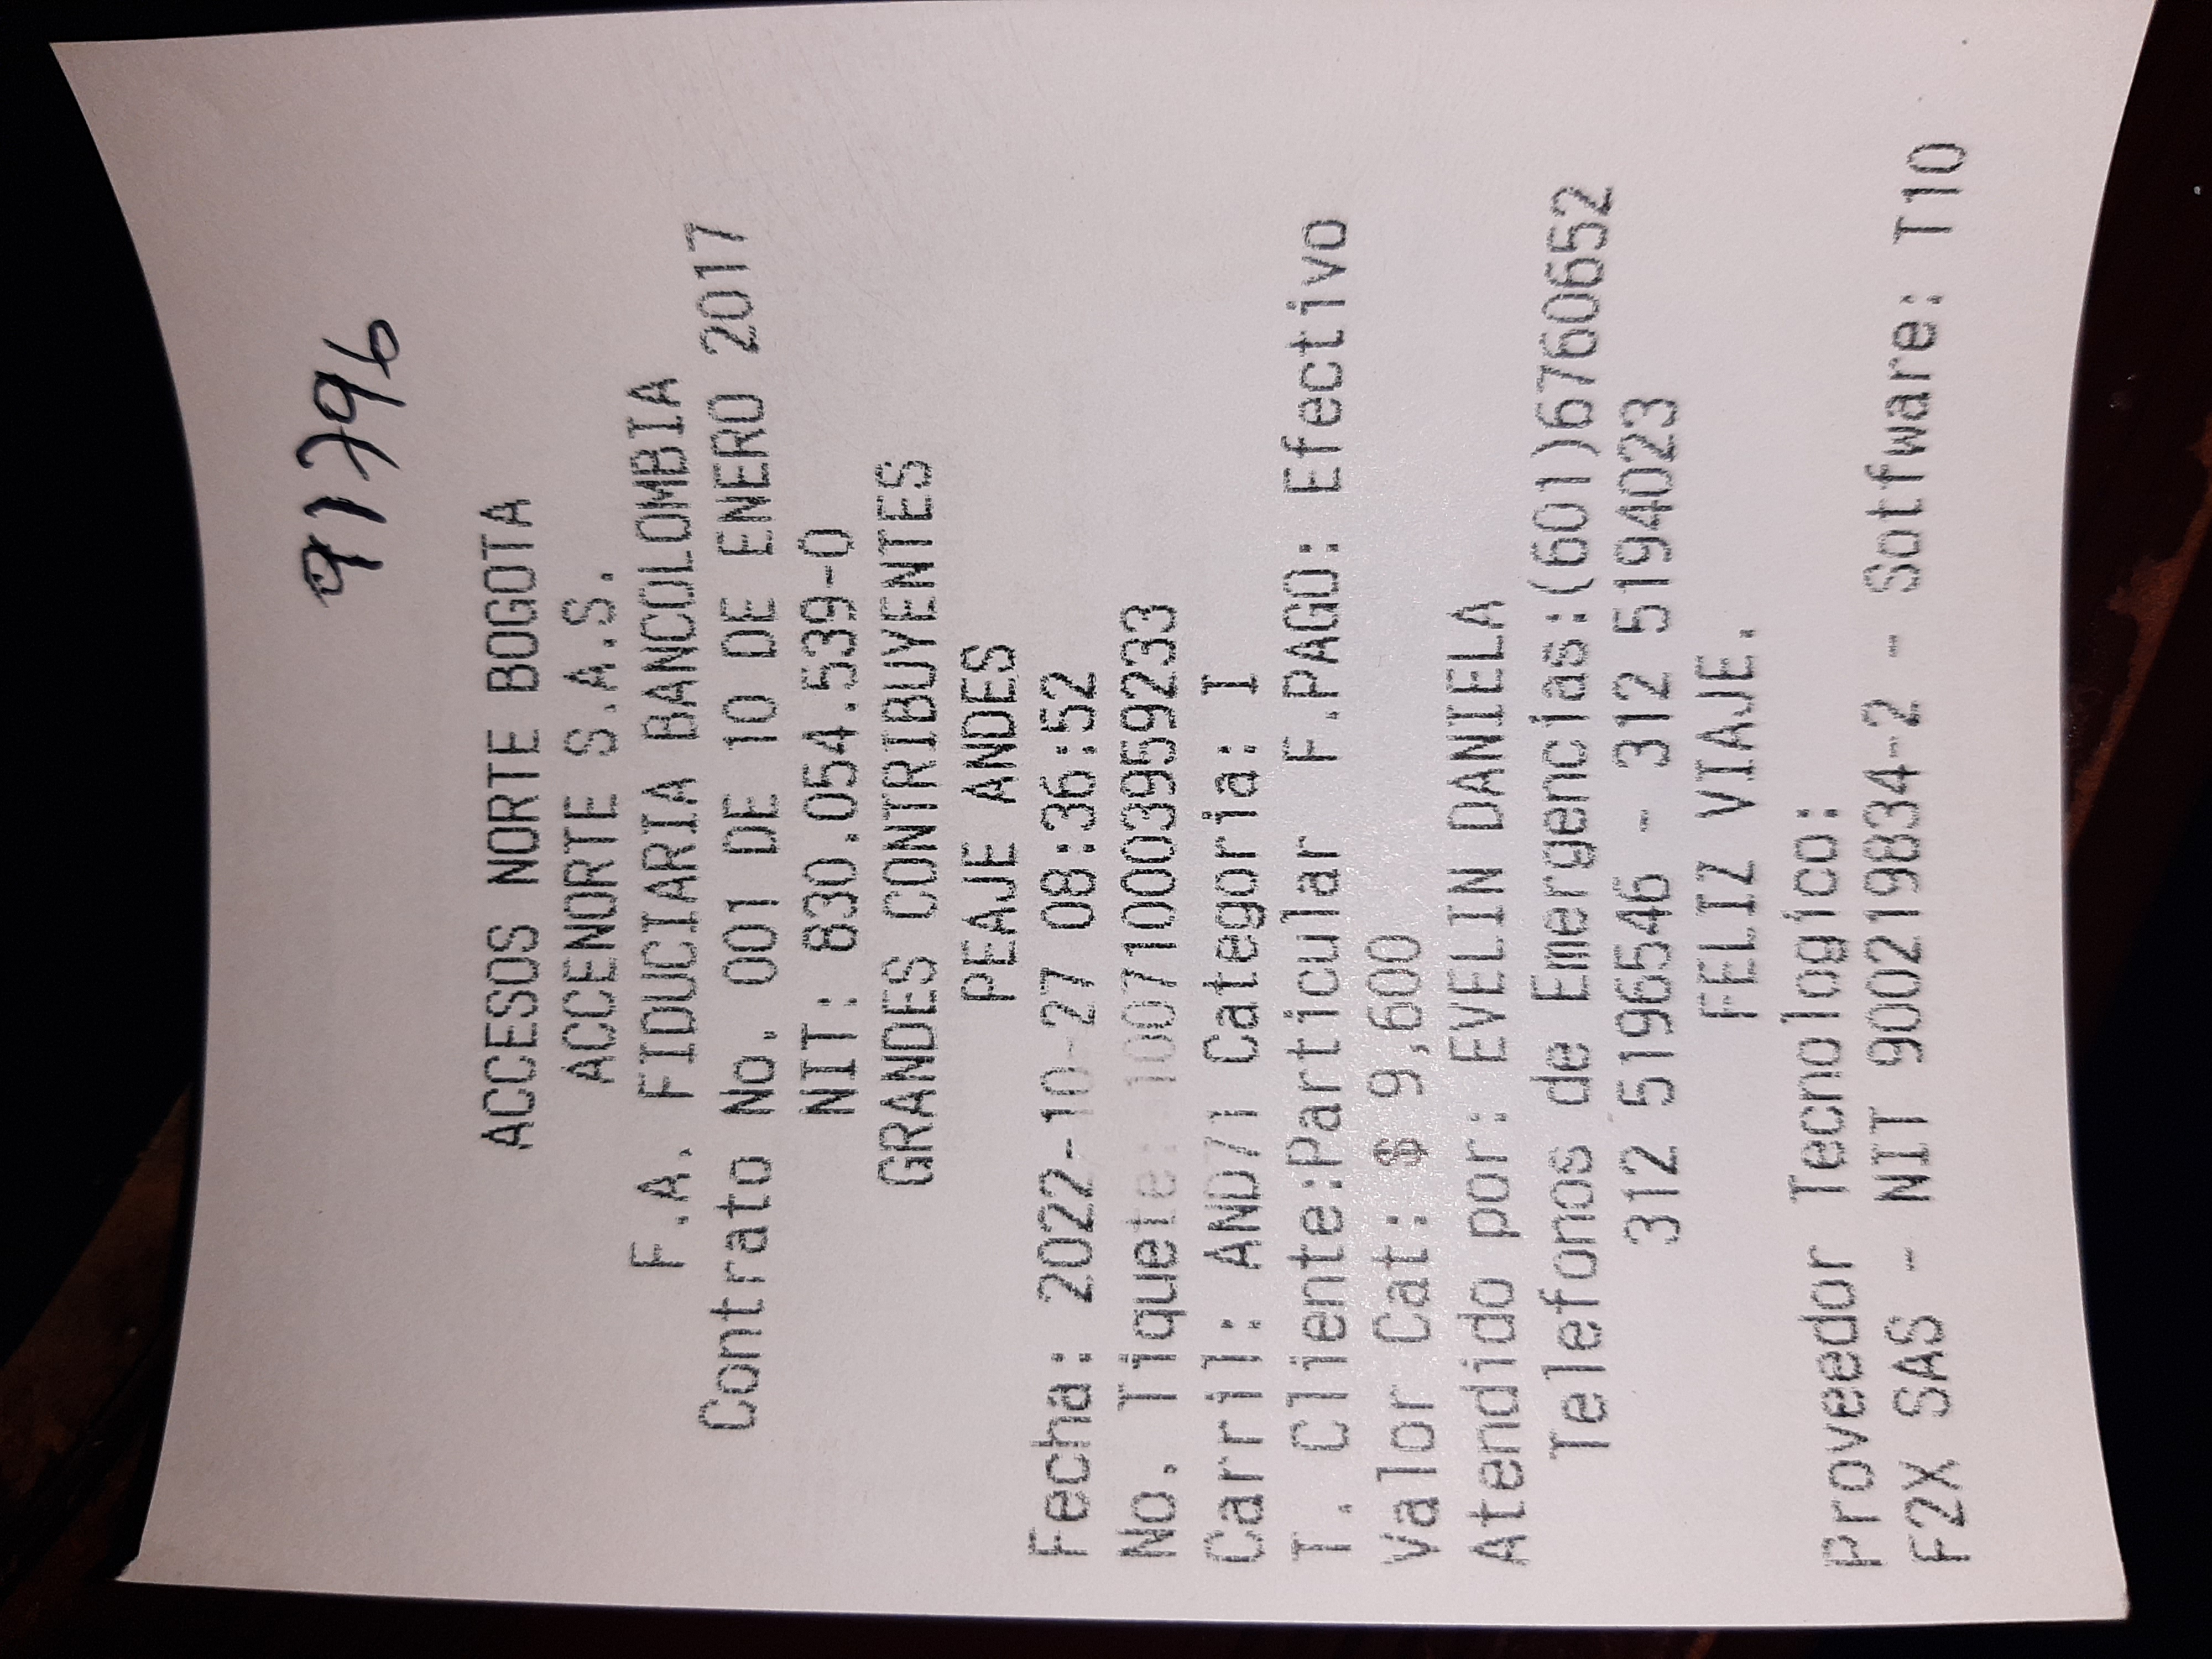 91796
ACCESOS NORTE BOGOTA
ACCENORTE S.A.S.
F.A. FIDUCIARIA BANCOLOMBIA
Contrato No. 001 DE 10 DE ENERO 2017
NIT: 830.054.539-0
GRANDES CONTRIBUYENTES
PEAJE ANDES
Fecha: 2022-10-27 08:36:52
No. Tiquete: 100710003959233
Carril: AND71 Categoria: I
T. Cliente:Particular F.PAGO: Efectivo
Valor Cat: $ 9,600
Atendido por: EVELIN DANIELA
Telefonos de Emergencias:(601)6760652
312 5196546 - 312 5194023
FELIZ VIAJE.
Proveedor Tecnologico:
F2X SAS - NIT 900219834-2 - Sotfware: T10